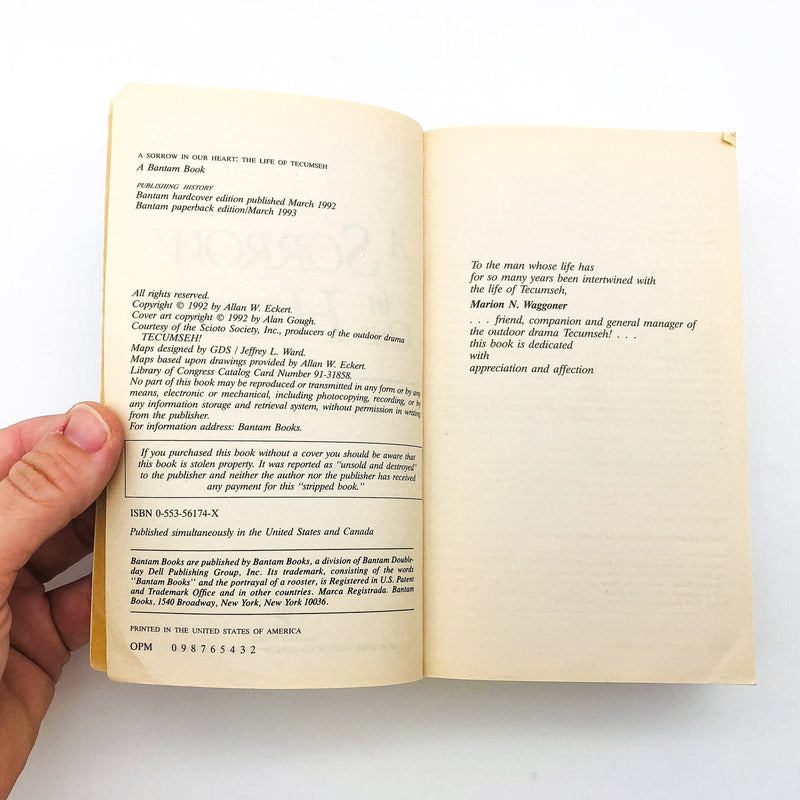 A SORROW IN OUR HEART: THE LIFE OF TECUMSEH
A Bantam Book
PUBLISHING HISTORY
Bantam hardcover edition published March 1992
Bantam paperback edition/March 1993
All rights reserved.
Copyright © 1992 by Allan W. Eckert.
Cover art copyright © 1992 by Alan Gough.
Courtesy of the Scioto Society, Inc., producers of the outdoor drama
TECUMSEH!
Maps designed by GDS / Jeffrey L. Ward.
Maps based upon drawings provided by Allan W. Eckert.
Library of Congress Catalog Card Number 91-31858.
No part of this book may be reproduced or transmitted in any form or by any
means, electronic or mechanical, including photocopying, recording, or by
any information storage and retrieval system, without permission in writing
from the publisher.
For information address: Bantam Books.
If you purchased this book without a cover you should be aware that
this book is stolen property. It was reported as "unsold and destroyed"
to the publisher and neither the author nor the publisher has received
any payment for this "stripped book."
ISBN 0-553-56174-X
Published simultaneously in the United States and Canada
Bantam Books are published by Bantam Books, a division of Bantam Double-
day Dell Publishing Group, Inc. Its trademark, consisting of the words
"Bantam Books" and the portrayal of a rooster, is Registered in U.S. Patent
and Trademark Office and in other countries. Marca Registrada. Bantam
Books, 1540 Broadway, New York, New York 10036.
PRINTED IN THE UNITED STATES OF AMERICA
OPM 0 9 8 7 6 5 4 3 2
To the man whose life has
for so many years been intertwined with
the life of Tecumseh,
Marion N. Waggoner
. . . friend, companion and general manager of
the outdoor drama Tecumseh! . . .
this book is dedicated
with
appreciation and affection